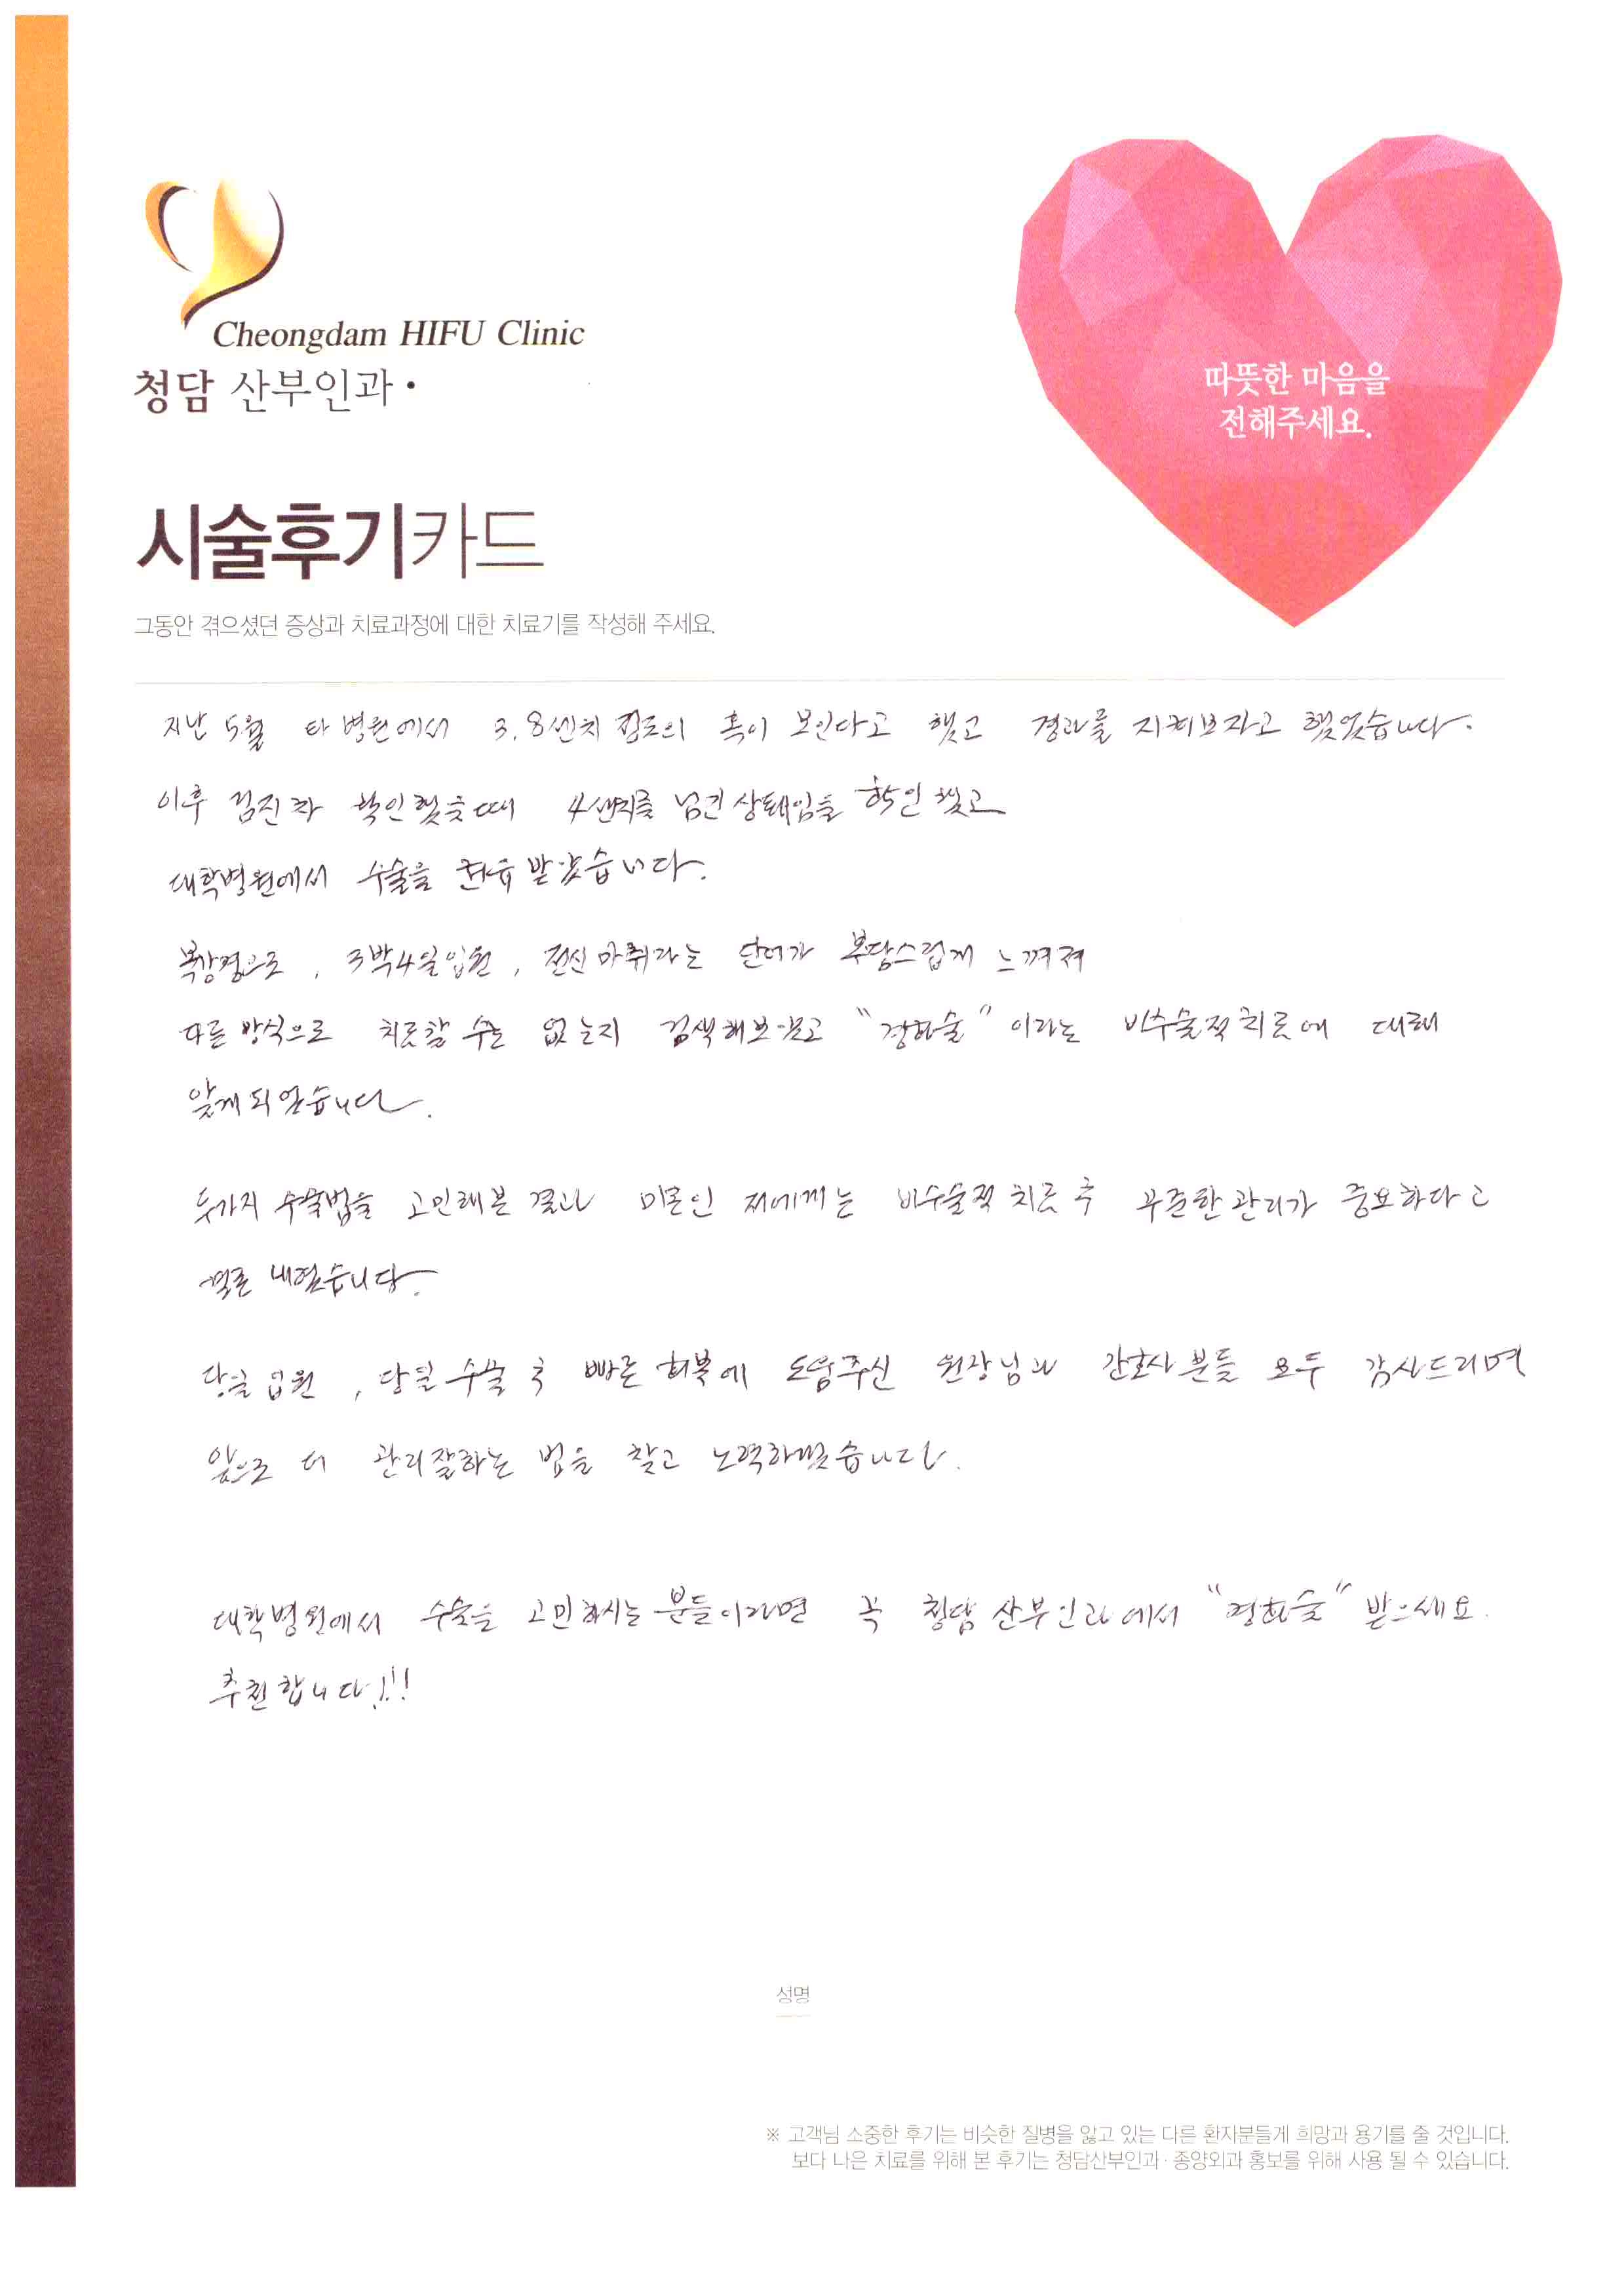 Cheongdam HIFU Clinic
청담 산부인과·
따뜻한 마음을
전해주세요.
시술후기카드
그동안 겪으셨던 증상과 치료과정에 대한 치료기를 작성해 주세요.
지난 5월 타 병원에서 3.8센치 정도의 혹이 보인다고 했고 경과를 지켜보자고 했었습니다.
이후 검진차 확인했을때 4센치를 넘긴 상태임을 확인했고
대학병원에서 수술을 권유 받았습니다.
복강경으로, 3박4일입원, 전신마취라는 단어가 부담스럽게 느껴져
다른 방식으로 치료할 수는 없는지 검색해보았고 "경화술" 이라는 비수술적치료에 대해
알게되었습니다.
두가지 수술법을 고민해본 결과 미혼인 저에게는 비수술적 치료 후 꾸준한 관리가 중요하다고
결론 내렸습니다.
당일 입원, 당일 수술 후 빠른 회복에 도움주신 원장님과 간호사분들 모두 감사드리며
앞으로 더 관리잘하는 법을 찾고 노력하겠습니다.
대학병원에서 수술을 고민하시는 분들이라면 꼭 청담 산부인과에서 "경화술" 받으세요.
추천합니다!!!
성명
※ 고객님 소중한 후기는 비슷한 질병을 앓고 있는 다른 환자분들게 희망과 용기를 줄 것입니다.
보다 나은 치료를 위해 본 후기는 청담산부인과·종양외과 홍보를 위해 사용 될 수 있습니다.